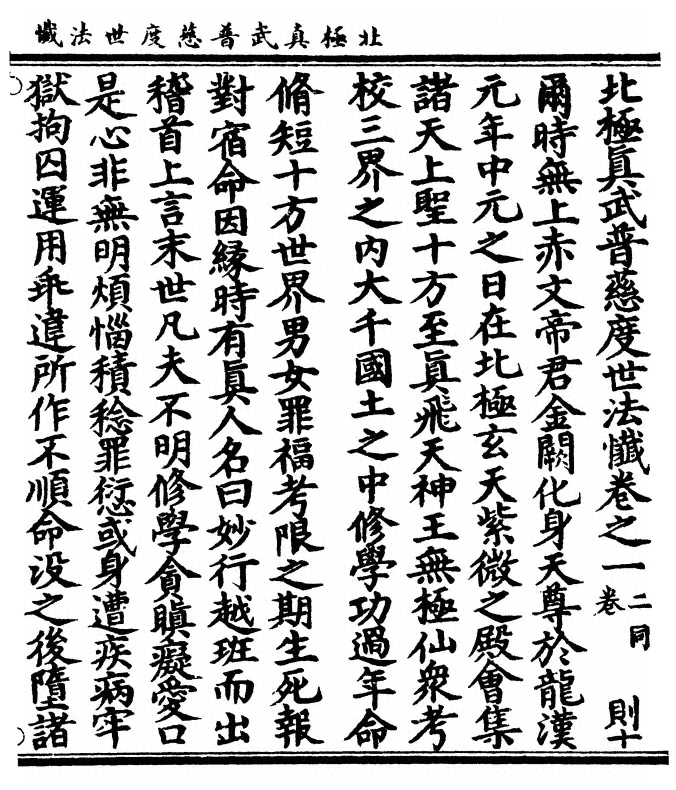 北極真武普慈度世法懺
北極真武普慈度世法懺卷之一 二同卷 則十
爾時無上赤文帝君金闕化身天尊於龍漢
元年中元之日在北極玄天紫微之殿會集
諸天上聖十方至真飛天神王無極仙衆考
校三界之內大千國土之中修學功過年命
脩短十方世界男女罪福考限之期生死報
對宿命因縁時有真人名曰妙行越班而出
稽首上言末世凡夫不明修學貪瞋癡愛口
是心非無明煩惱積稔罪愆或身遭疾病牢
獄拘囚運用乖違所作不順命没之後墮諸